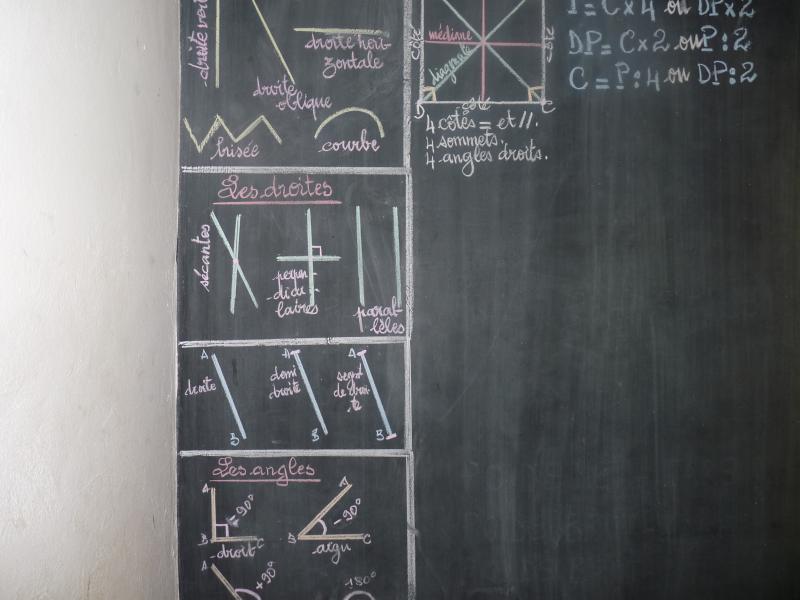 droite vert
droite hori-
zontale
droite
oblique
brisée
courbe
Les droites
sécantes
perpen-
-dicu-
laires
paral-
lèles
A
droite
B
A
demi
droite
B
A
segmt
de droi-
te
B
Les angles
A
-90°
B
C
-droit
A
-90°
B
C
-aigu
A
+90°
180°
côté
médiane
côté
diagonale
côté
C
4 côtés = et //.
4 sommets.
4 angles droits.
P = C x 4 ou DP x 2
DP = C x 2 ou P : 2
C = P : 4 ou DP : 2